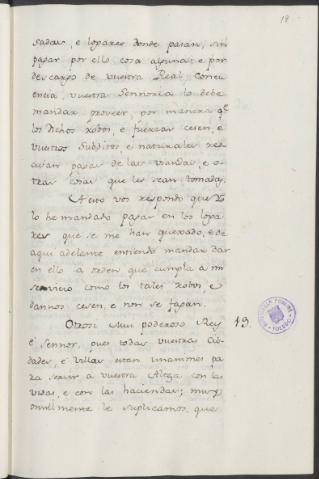 18
sadas, e logares donde pasan, sin
pagar por ello cosa alguna: e por
descargo de vuestra Real Concien
cia, vuestra Sennoria lo debe
mandar proveer, por manera q.e
los dichos robos, e fuerzas cesen, e
vuestros Subditos, e naturales res
ciban pagas de las viandas, e o-
tras cosas que les sean tomadas.
A esto vos respondo que Yo
lo he mandado pagar en los loga
res que se me han quexado, e de
aqui adelante entiendo mandar dar
en ello a orden que cumpla a mi
servicio como los tales robos, e
dannos cesen, e non se fagan.
Otrosi: Muy poderoso Rey 19.
é Sennor, pues todas vuestras Cib
dades, e Villas estan unanimes pa
ra servir a vuestra Alteza con las
vidas, e con las haciendas; muy
omillmente le suplicamos, que
BIBLIOTECA PUBLICA
TOLEDO